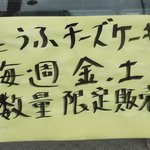 とうふチーズケーキ
毎週金.土
数量限定販売